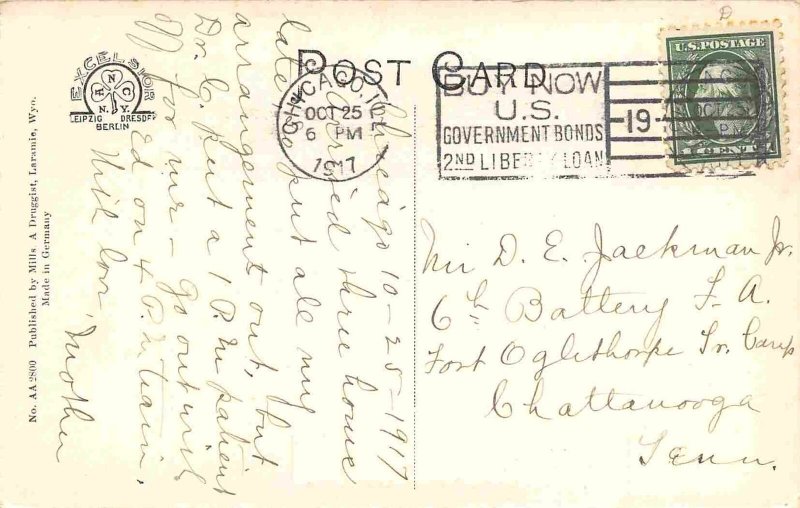 POST CARD
EXCELSIOR
N.
H C
N.Y.
LEIPZIG DRESDEN
BERLIN
No. AA 2800 Published by Mills. A Druggist, Laramie, Wyo.
Made in Germany
CHICAGO, ILL.
OCT 25
6 PM
1917
BUY NOW
U.S.
GOVERNMENT BONDS
2ND LIBERTY LOAN
19
U.S. POSTAGE
1 CENT 1
D
Chicago 10-25-1917
Arrived three hours
late. So put all my
arrangement out, but
Dr. C. put a 1 P.M. patient
off for me - Go out with
Ed on 4 P.M. train.
With love
Mother
Mr D. E. Jackman Jr.
6th Battery F. A.
Fort Oglethorpe Tr. Camp
Chattanooga
Tenn.